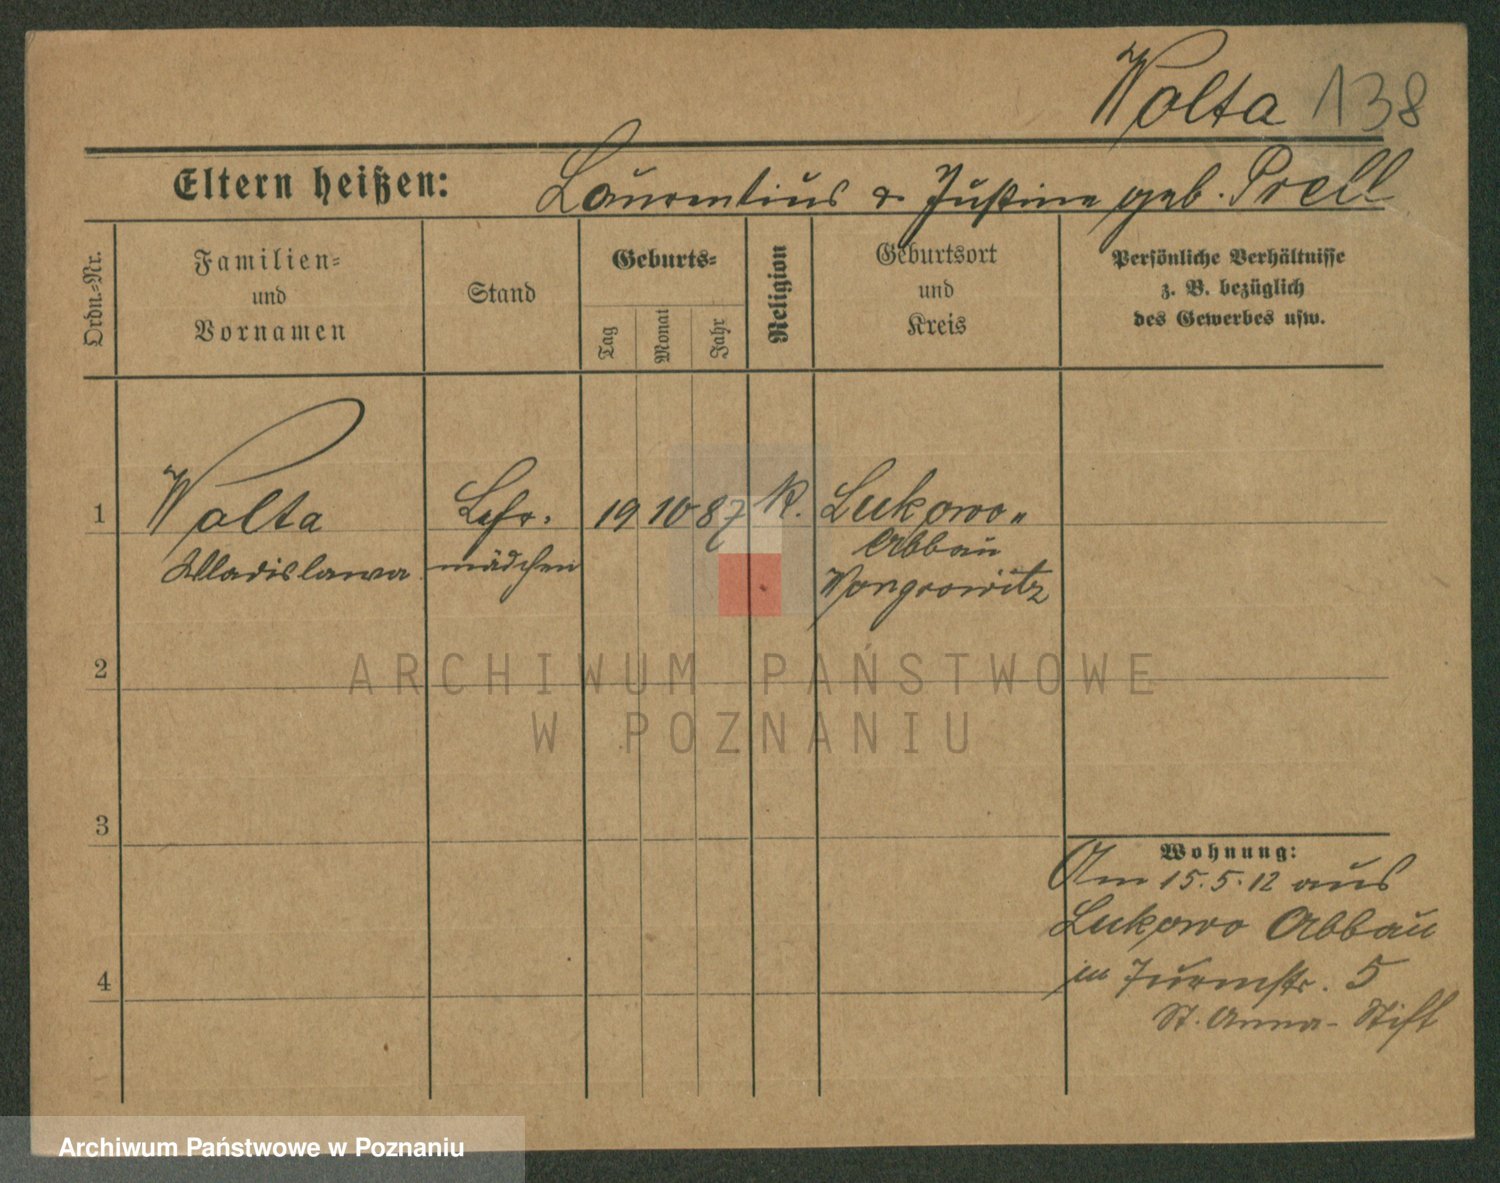 Wolta 138
Eltern heißen: Laurentius & Justine geb. Prell
Ordn.-Nr.
Familien-
und
Vornamen
Stand
Geburts-
Tag
Monat
Jahr
Religion
Geburtsort
und
Kreis
Persönliche Verhältnisse
z. B. bezüglich
des Gewerbes usw.
1 Wolta Lehr- 19 10 87 k. Lukowo-
Abbau
Wladislawa mädchen Wongrowitz
2
ARCHIWUM PAŃSTWOWE
W POZNANIU
3
Wohnung:
Am 15.5.12 aus
Lukowo Abbau
in Turmstr. 5
St. Anna-Stift
4
Archiwum Państwowe w Poznaniu